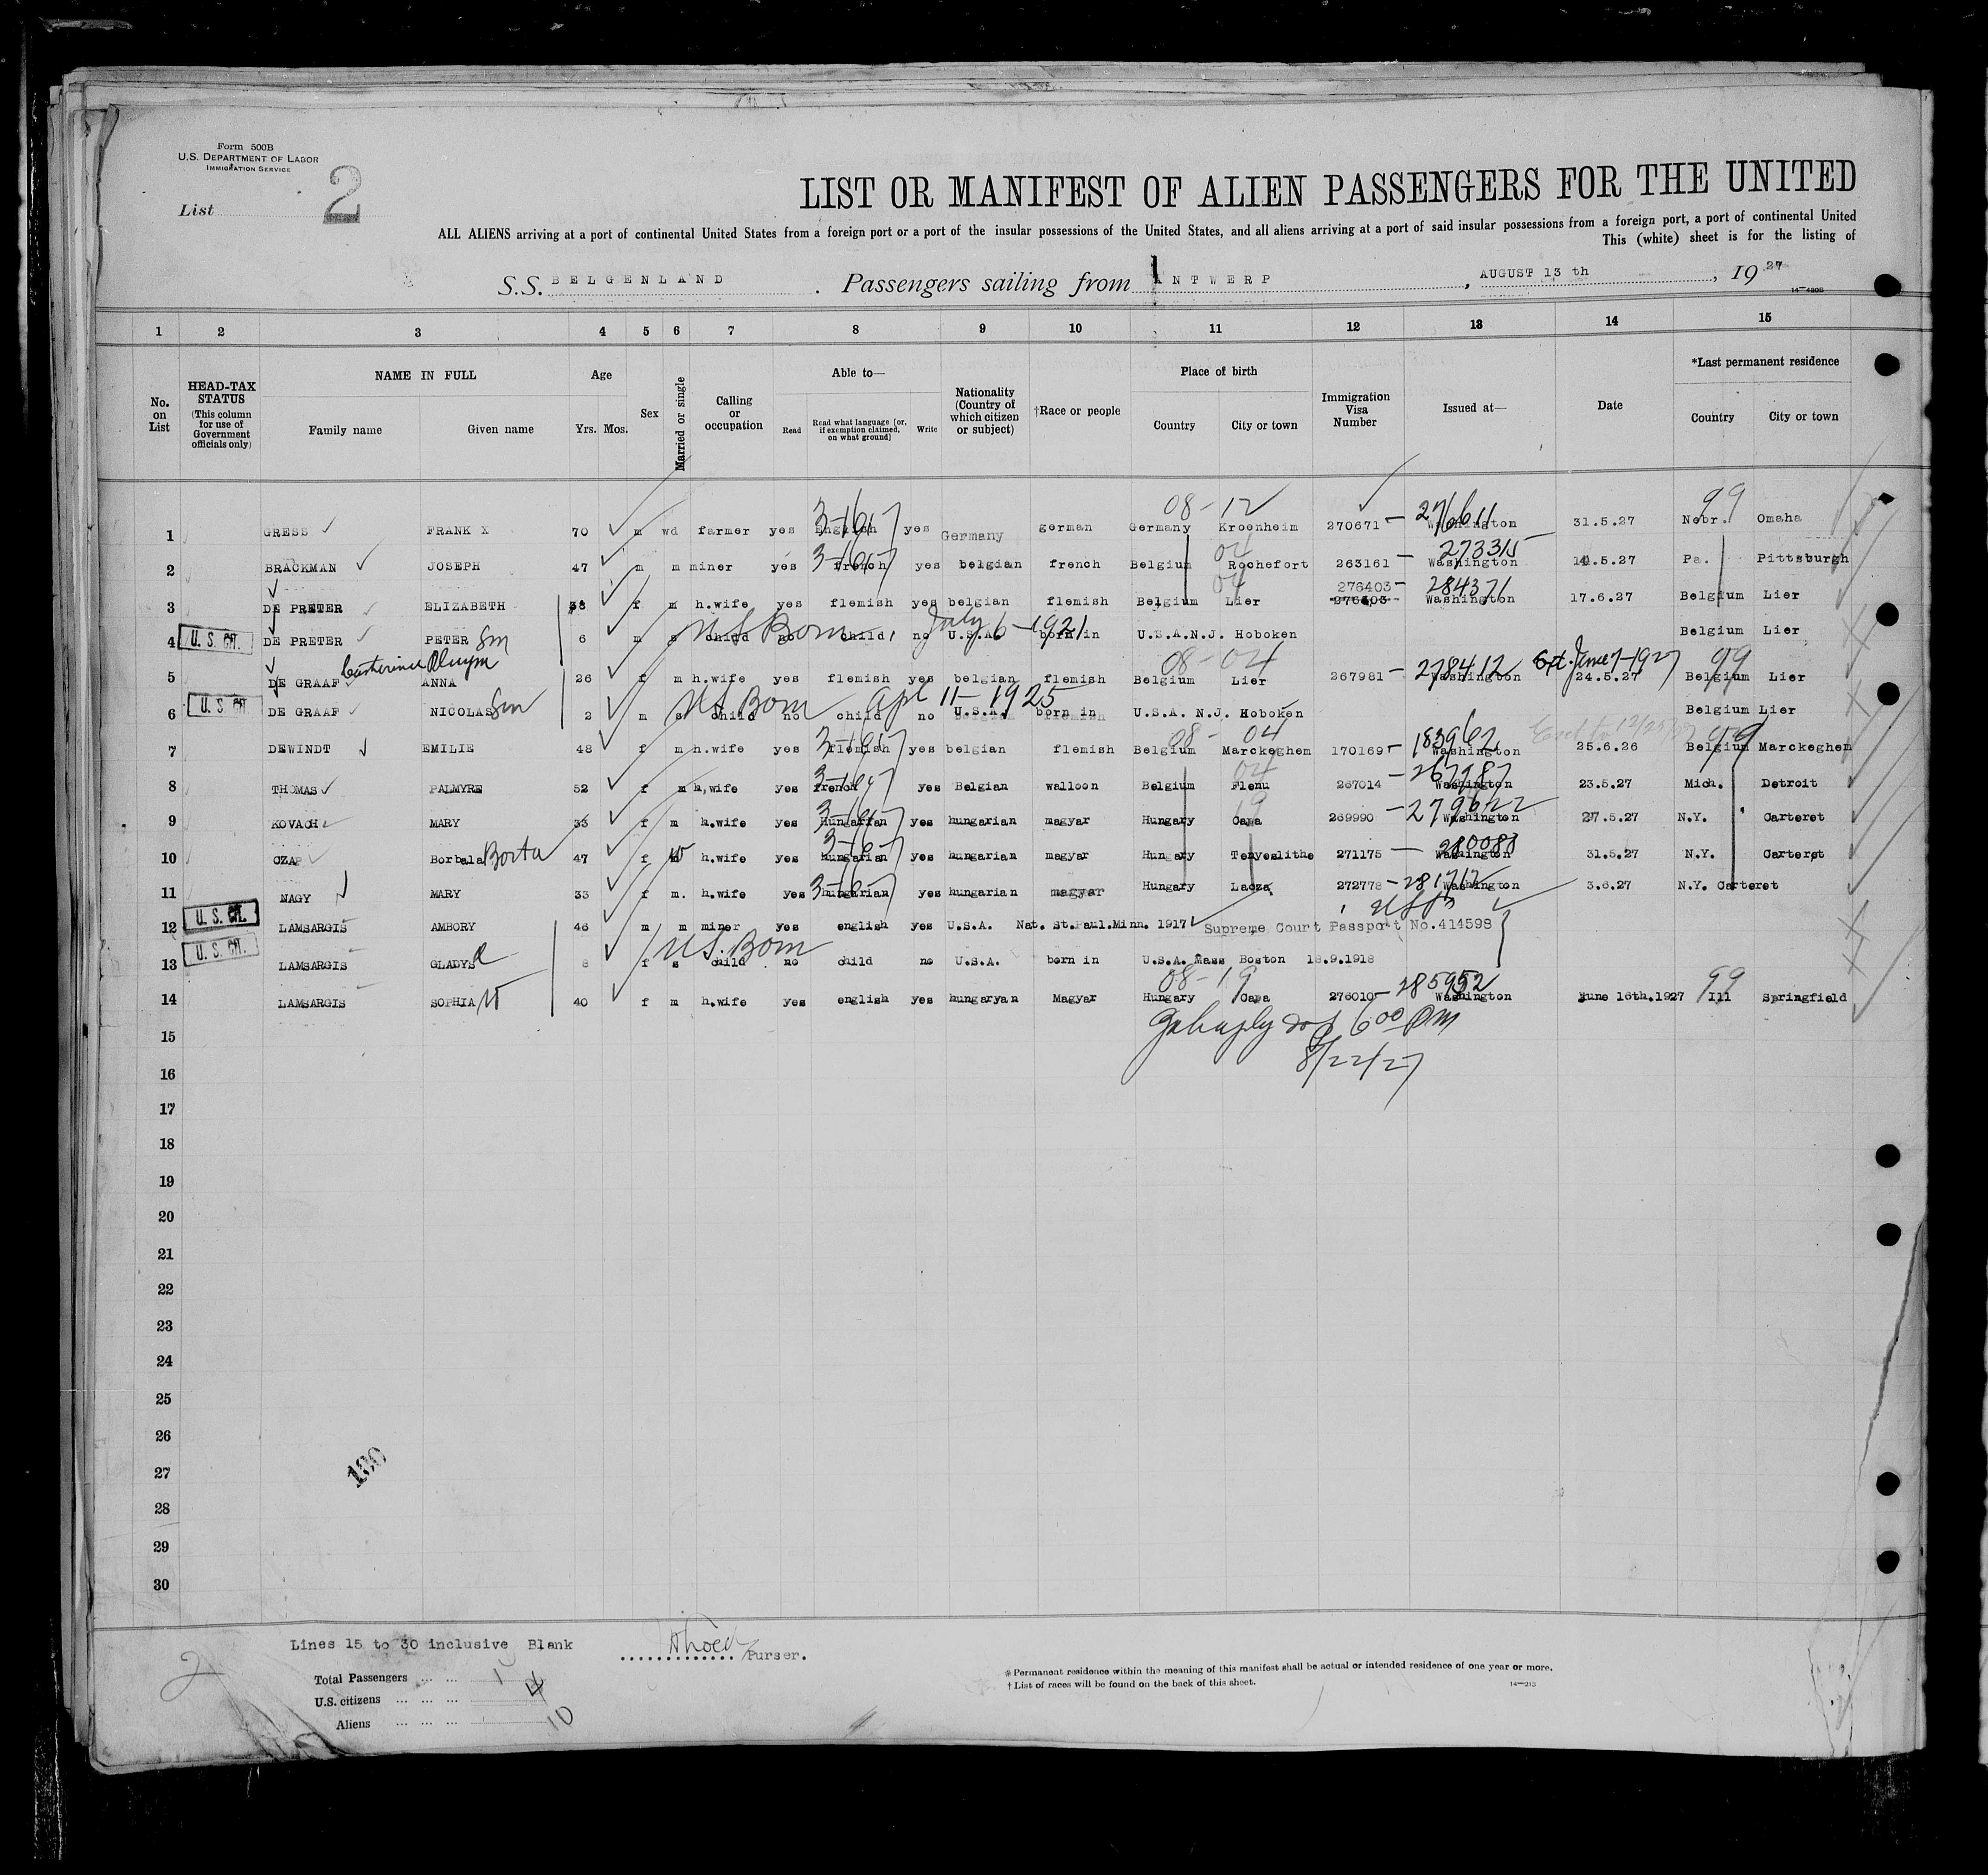 Form 500B
U.S. DEPARTMENT OF LABOR
IMMIGRATION SERVICE
List 2
LIST OR MANIFEST OF ALIEN PASSENGERS FOR THE UNITED
ALL ALIENS arriving at a port of continental United States from a foreign port or a port of the insular possessions of the United States, and all aliens arriving at a port of said insular possessions from a foreign port, a port of continental United
This (white) sheet is for the listing of
S.S. BELGENLAND . Passengers sailing from ANTWERP , AUGUST 13 th , 19 27
1 2 3 4 5 6 7 8 9 10 11 12 13 14 15
No. on List
HEAD-TAX STATUS (This column for use of Government officials only)
NAME IN FULL Family name Given name
Age Yrs. Mos.
Sex
Married or single
Calling or occupation
Able to— Read Read what language [or, if exemption claimed, on what ground] Write
Nationality (Country of which citizen or subject)
†Race or people
Place of birth Country City or town
Immigration Visa Number
Issued at—
Date
*Last permanent residence Country City or town
08-12 99
1 GRESS FRANK X 70 m wd farmer yes English 3-16-7 yes Germany german Germany Kroenheim 270671 - 276611 Washington 31.5.27 Nebr. Omaha
2 BRACKMAN JOSEPH 47 m m miner yes french 3-16-7 yes belgian french Belgium Rochefort 04 263161 - 273315 Washington 14.5.27 Pa. Pittsburgh
3 DE PRETER ELIZABETH 38 f m h.wife yes flemish yes belgian flemish Belgium Lier 04 276403 - 284376 276403 Washington 17.6.27 Belgium Lier
4 U. S. CIT. DE PRETER PETER Sm 6 m s child US Born no child no U.S.A. July 6-1921 born in U.S.A.N.J. Hoboken Belgium Lier
Catherine 08-04 99
5 DE GRAAF ANNA 26 f m h.wife yes flemish yes belgian flemish Belgium Lier 267981 - 278412 Washington Ext. June 7-1927 24.5.27 Belgium Lier
6 U. S. CIT. DE GRAAF NICOLAS Sm 2 m s child US Born no child no Apl 11-1925 U.S.A. born in U.S.A. N.J. Hoboken Belgium Lier
08-04 99
7 DEWINDT EMILIE 48 f m h.wife yes flemish 3-16-7 yes belgian flemish Belgium Marckeghem 170169 - 183962 Washington 25.6.26 Belgium Marckeghem
8 THOMAS PALMYRE 52 f m h,wife yes french 3-16-7 yes Belgian walloon Belgium Flenu 04 267014 - 267987 Washington 23.5.27 Mich. Detroit
9 KOVACH MARY 33 f m h.wife yes Hungarian 3-16-7 yes hungarian magyar Hungary Capa 19 269990 - 279622 Washington 27.5.27 N.Y. Carteret
10 CZAP Borbala Borta 47 f w h.wife yes hungarian 3-16-7 yes hungarian magyar Hungary Tenyeslithe 271175 - 280088 Washington 31.5.27 N.Y. Carteret
11 NAGY MARY 33 f m. h.wife yes hungarian 3-16-7 yes hungarian magyar Hungary Lacza 272778 - 281712 Washington 3.6.27 N.Y. Carteret
12 U. S. CIT. LAMSARGIS AMBORY 46 m m miner yes english yes U.S.A. Nat. St.Paul.Minn. 1917 Supreme Court Passport No.414598
13 U. S. CIT. LAMSARGIS GLADYS 8 f s child U.S. Born no child no U.S.A. born in U.S.A. Mass Boston 18.9.1918
08-19 99
14 LAMSARGIS SOPHIA W 40 f m h.wife yes english yes hungaryan Magyar Hungary Capa 276010 - 285952 Washington June 16th.1927 Ill Springfield
15 6 00 PM
16 8/22/27
17
18
19
20
21
22
23
24
25
26
27
28
29
30
180
Lines 15 to 30 inclusive Blank
Purser.
2
Total Passengers
U.S. citizens 4
Aliens 10
* Permanent residence within the meaning of this manifest shall be actual or intended residence of one year or more.
† List of races will be found on the back of this sheet.
14—213